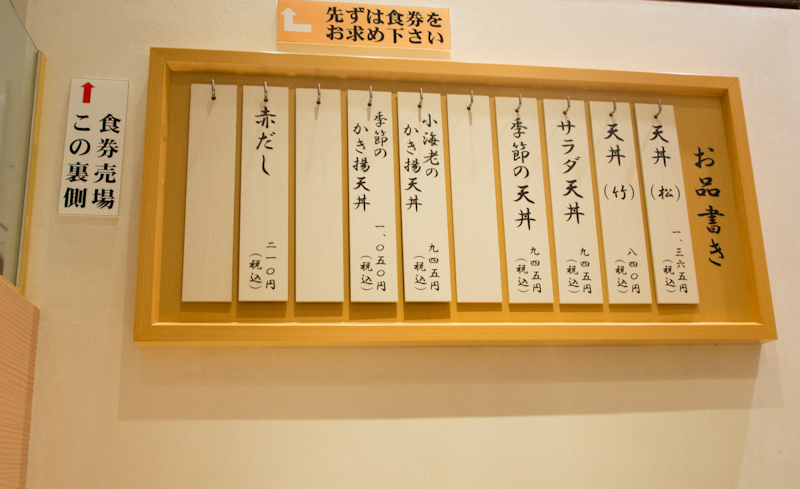 先ずは食券を
お求め下さい
食券売場
この裏側
お品書き
天丼（松）
一、三六五円
（税込）
天丼（竹）
八四〇円
（税込）
サラダ天丼
九四五円
（税込）
季節の天丼
九四五円
（税込）
小海老の
かき揚天丼
九四五円
（税込）
季節の
かき揚天丼
一、〇五〇円
（税込）
赤だし
二一〇円
（税込）